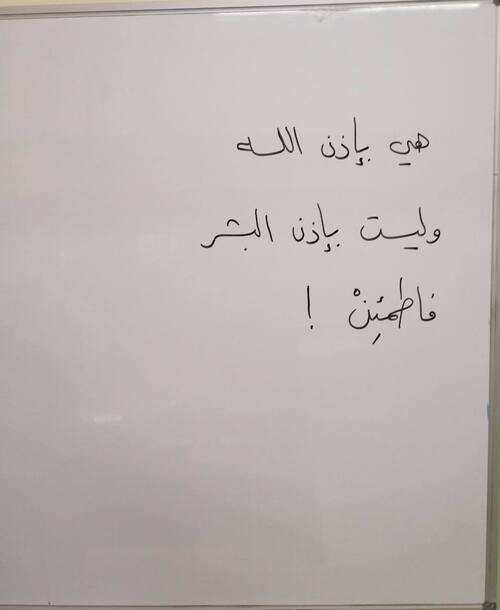 هي بإذن الله
وليست بإذن البشر
فاطمئِنْ !